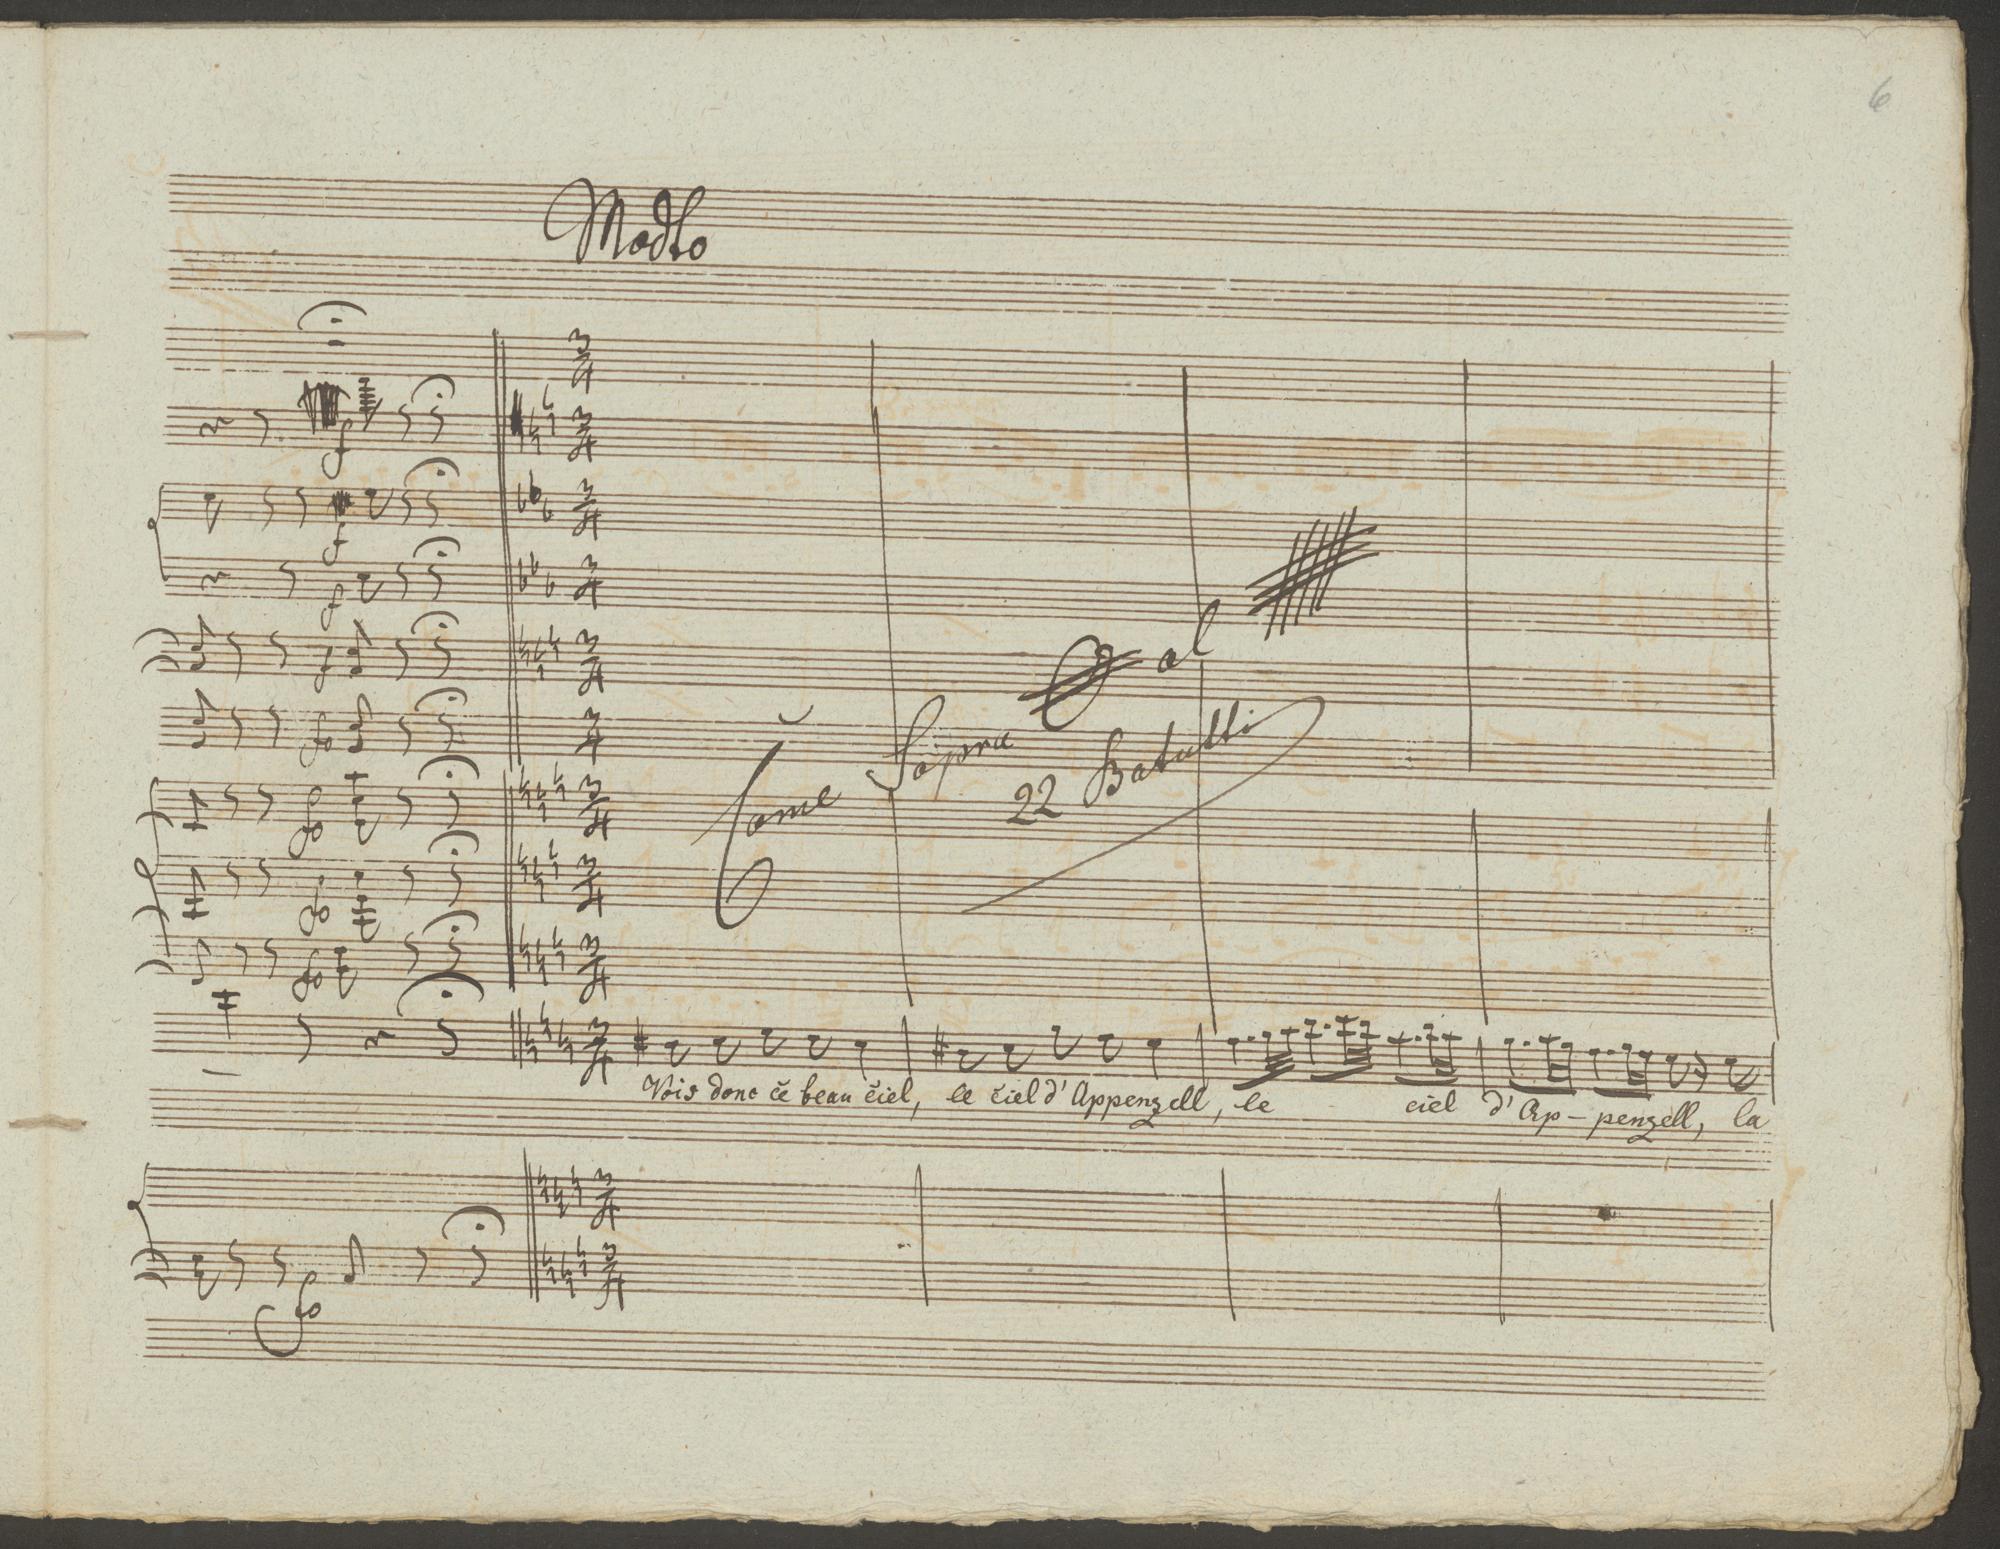 6
Modto
Come Sopra al
22 Batutti
Vois donc ce beau ciel, le ciel d'Appenzell, le ciel d'Ap-penzell, la